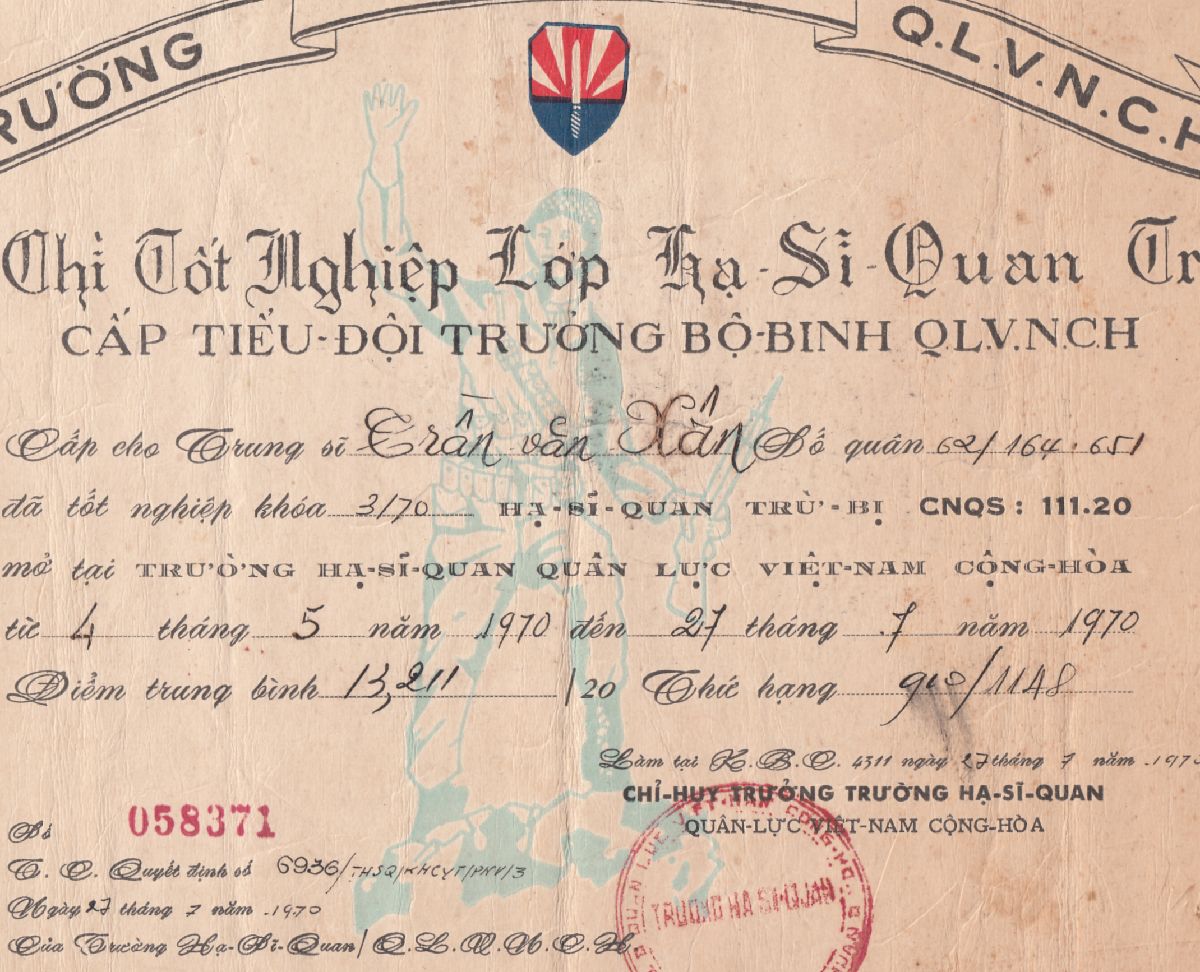 RƯỜNG
Q.L.V.N.C.H
Chỉ Tốt Nghiệp Lớp Hạ-Sĩ-Quan Tr
CẤP TIỂU-ĐỘI TRƯỞNG BỘ-BINH QLV.N.C.H
Cấp cho Trung sĩ Trần văn Xấn Số quân 62/164.651
đã tốt nghiệp khóa 3/70 HẠ-SĨ-QUAN TRỪ-BỊ CNQS : 111.20
mở tại TRƯỜNG HẠ-SĨ-QUAN QUÂN LỰC VIỆT-NAM CỘNG-HÒA
từ 4 tháng 5 năm 1970 đến 27 tháng 7 năm 1970
Điểm trung bình 13,211 /20 Thứ hạng 910/1148
Làm tại K.B.C. 4311 ngày 27 tháng 7 năm 1970
CHỈ-HUY TRƯỞNG TRƯỜNG HẠ-SĨ-QUAN
QUÂN-LỰC VIỆT-NAM CỘNG-HÒA
Số 058371
T.C. Quyết định số 6936/THSQ/KHCYT/PNV/3
Ngày 27 tháng 7 năm 1970
Của Trường Hạ-Sĩ-Quan/Q.L.V.N.C.H
TRƯỜNG HẠ SĨ-QUAN